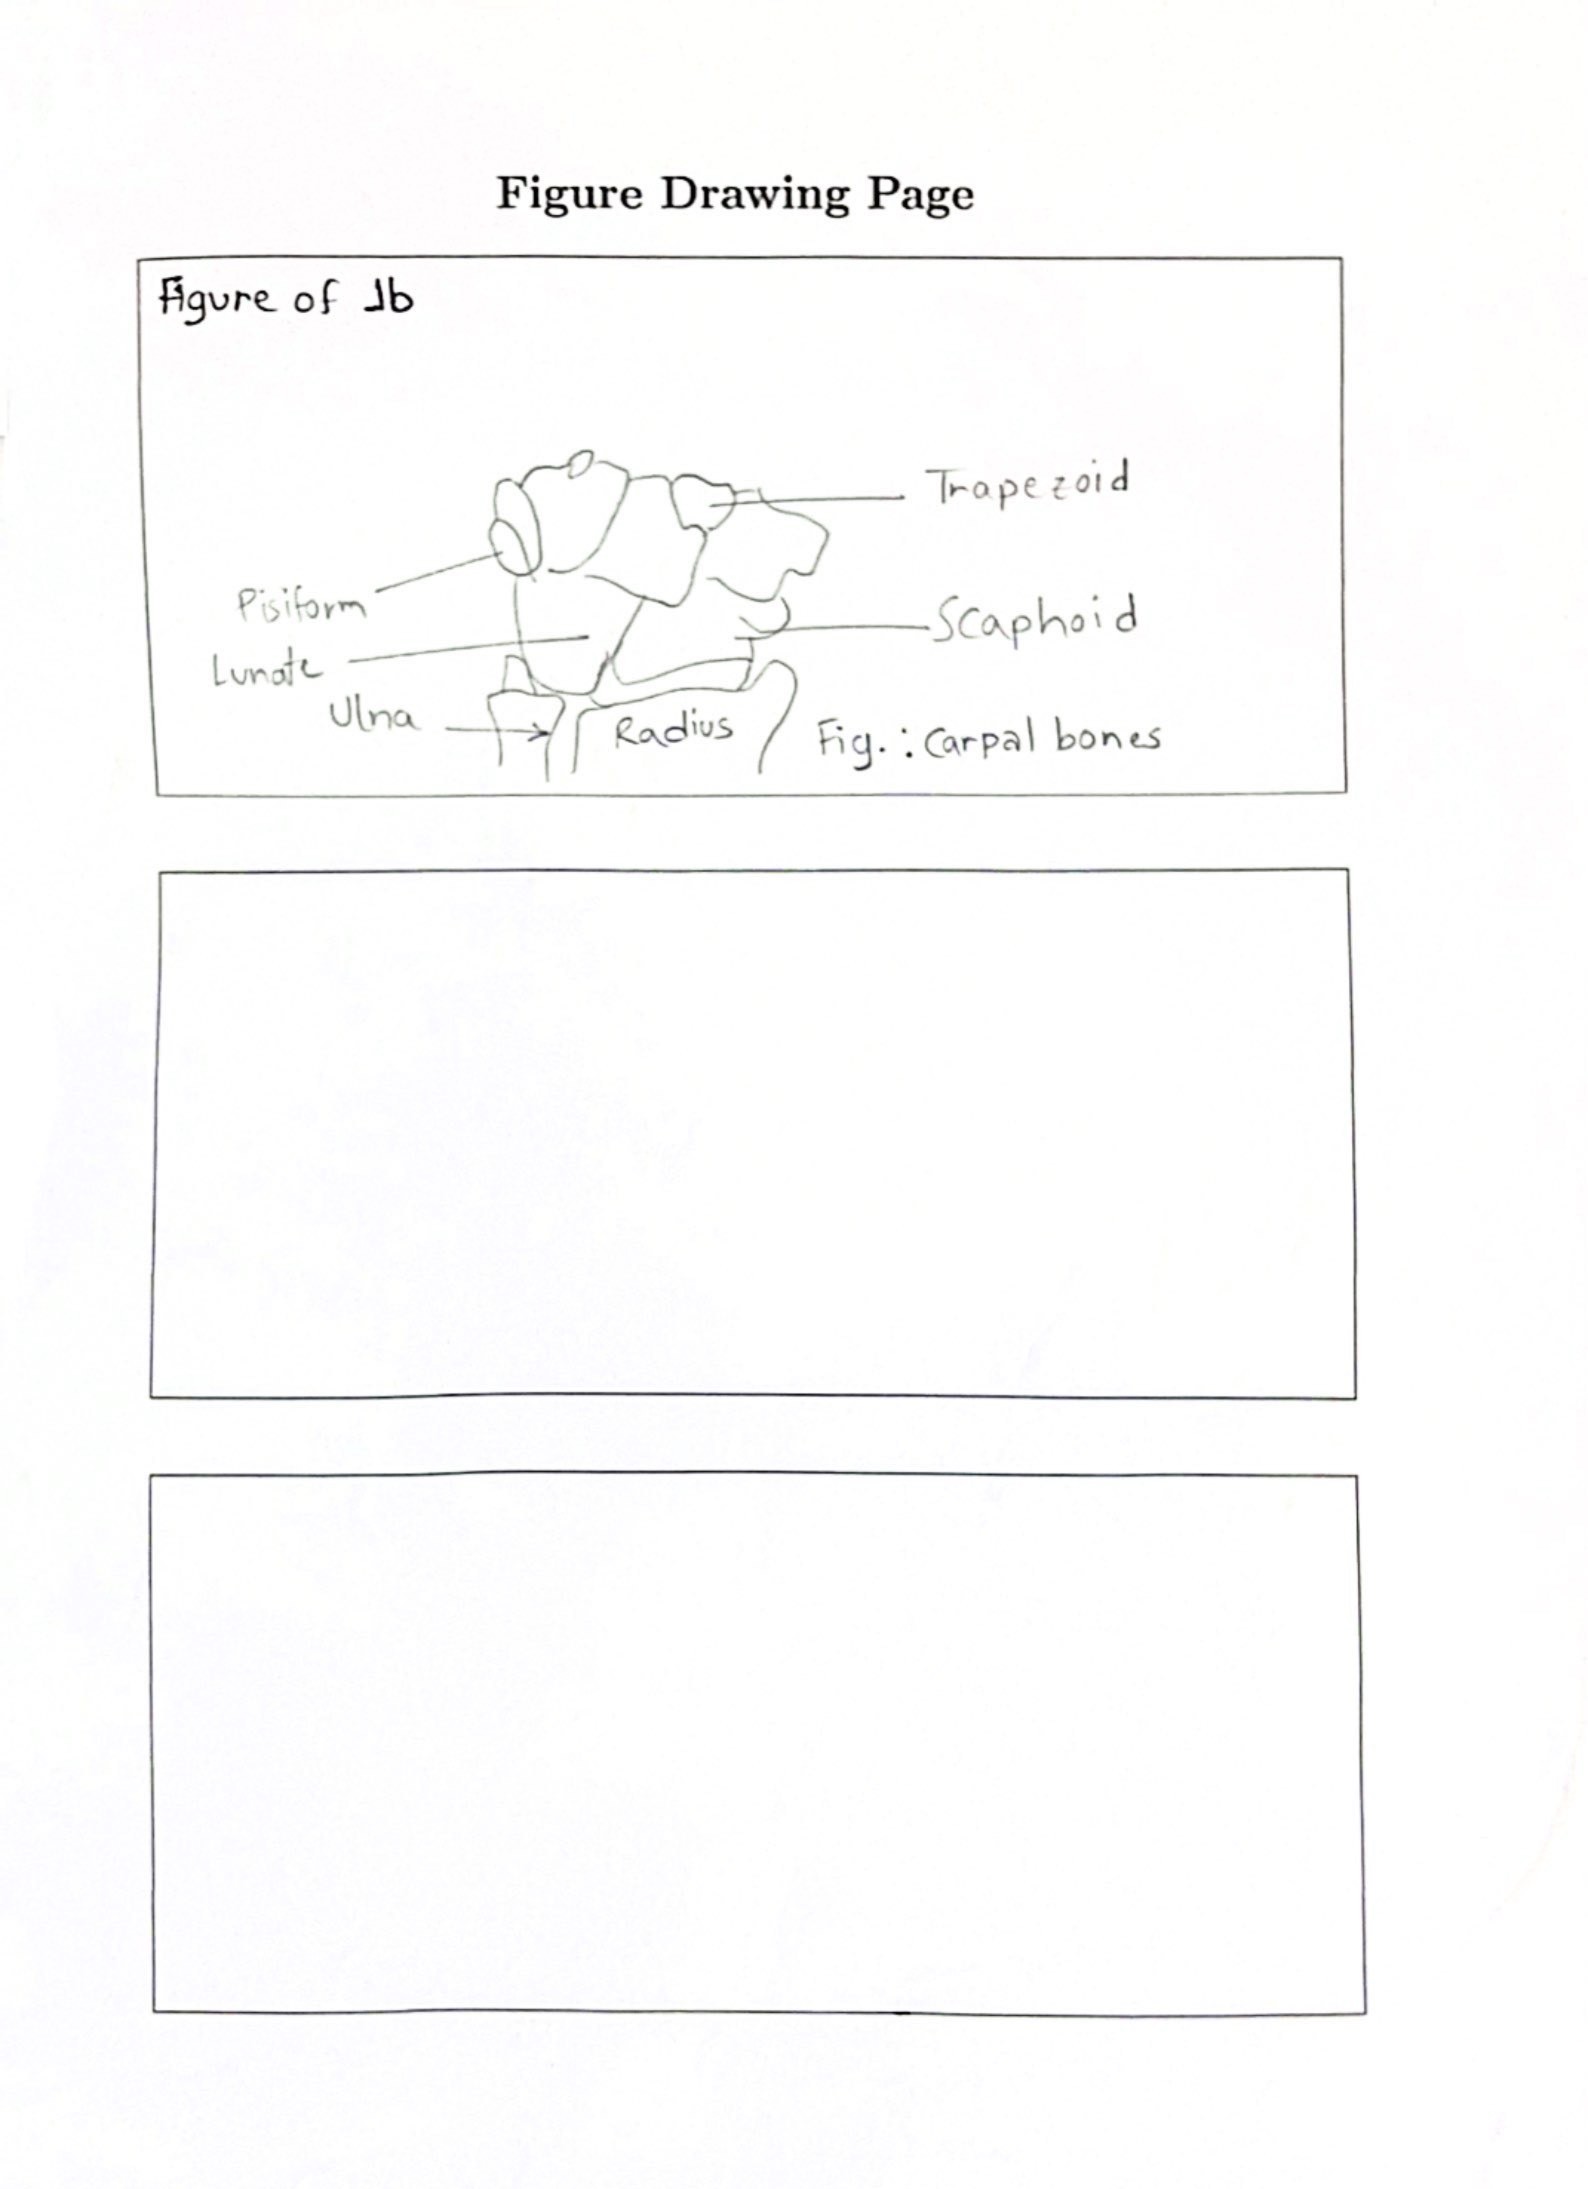 Figure Drawing Page
Figure of 1b
Trapezoid
Pisiform
Scaphoid
Lunate
Ulna
Radius
Fig. : Carpal bones